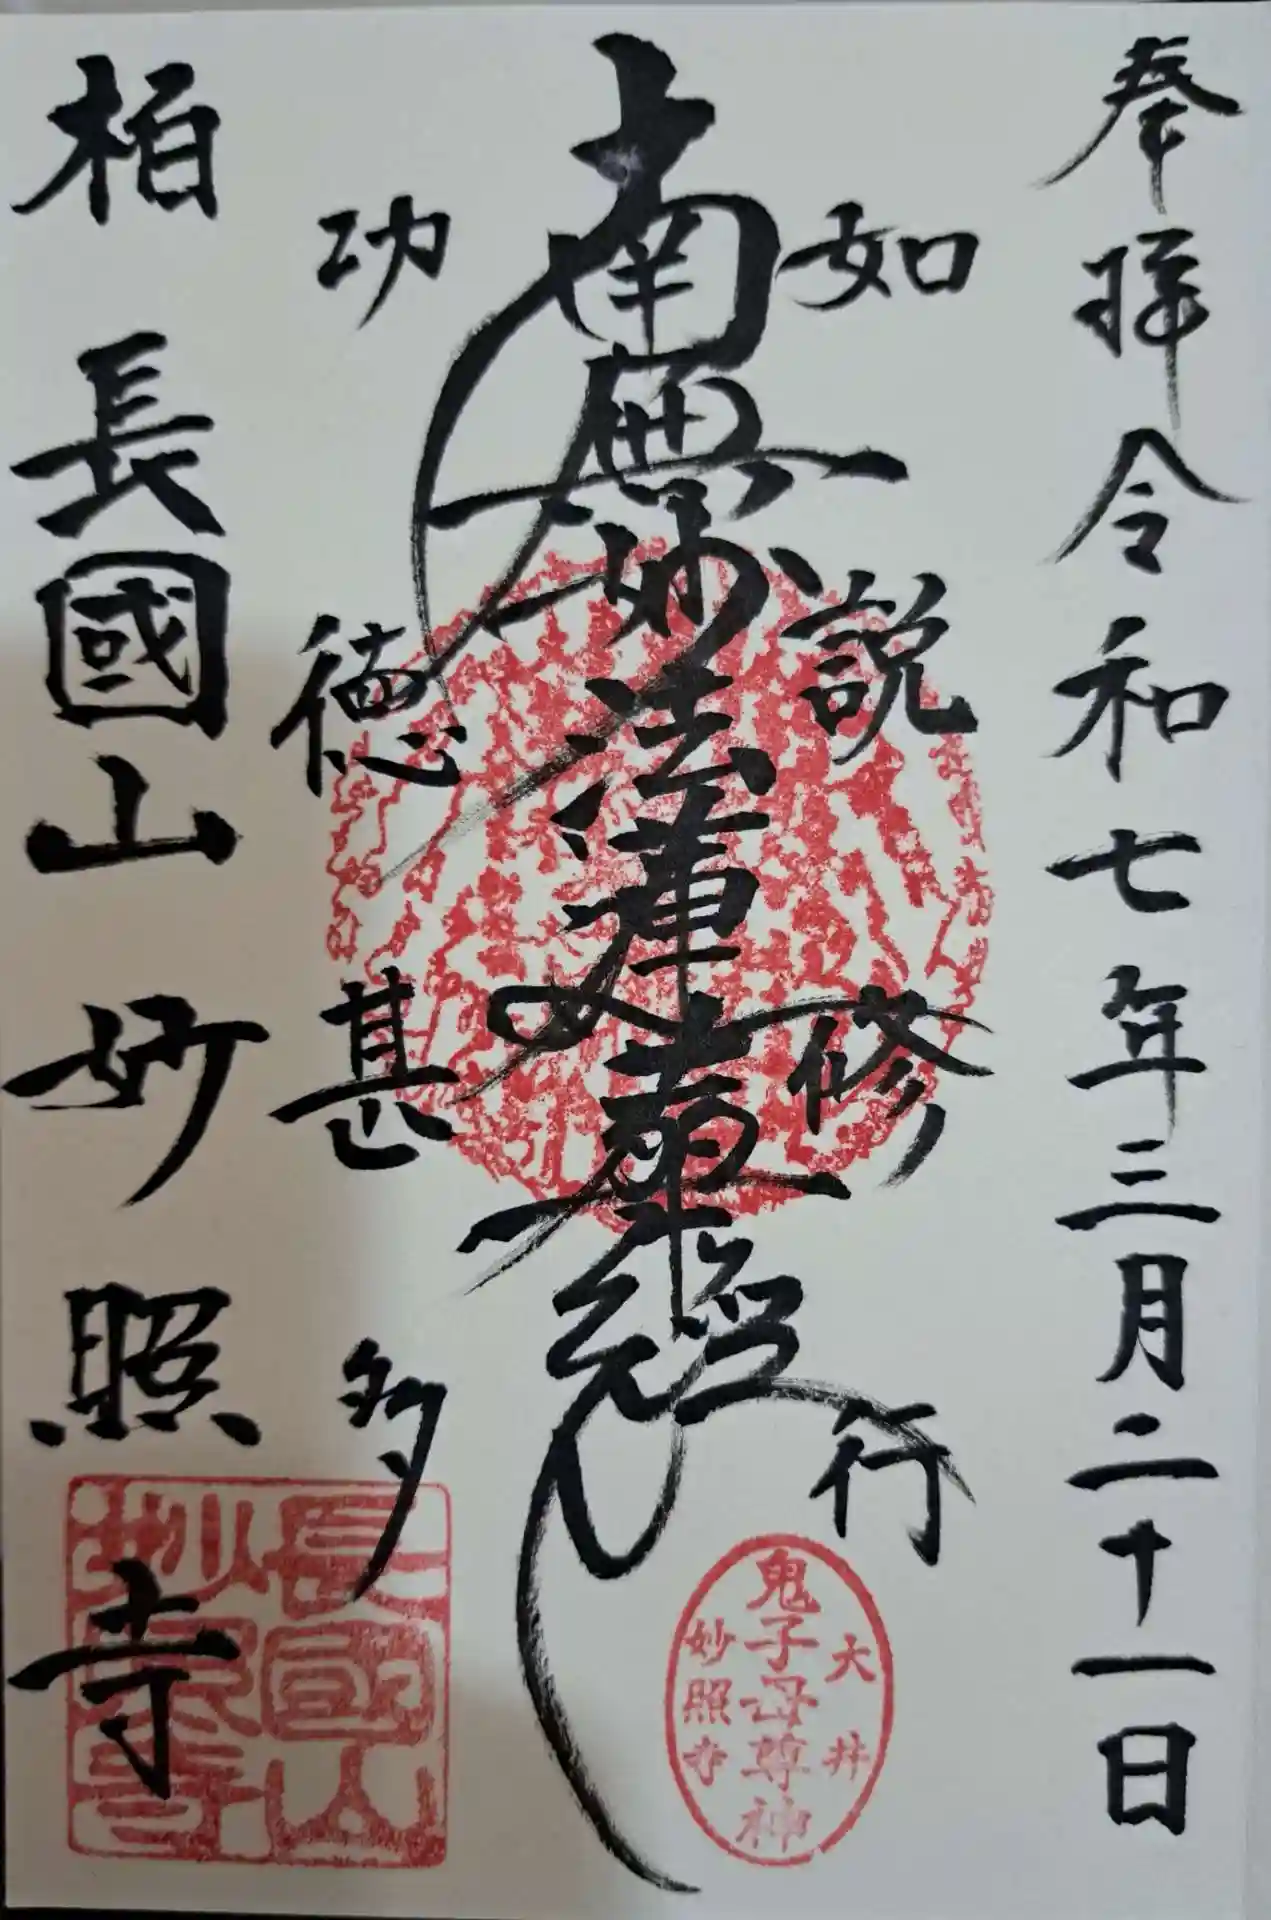 奉拝 令和七年三月二十一日
如説修行
南無妙法蓮華経
功徳甚多
柏 長國山 妙照寺
大井
鬼子母尊神
妙照寺
長國山
妙照寺